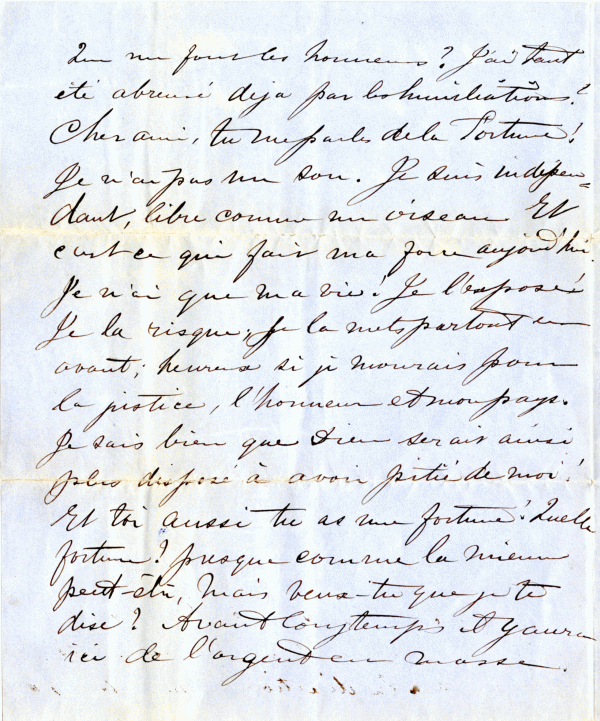 Que me font les honneurs? J'ai tant
été abreuvé deja par les humiliations?
Cher ami, tu me parles de la Fortune!
Je n'ai pas un sou. Je suis indépen=
dant, libre comme un oiseau Et
c'est ce qui fait ma force aujourd'hui.
Je n'ai que ma vie! Je l'expose!
Je la risque; je la mets partout en
avant; heureux si je mourais pour
la justice, l'honneur et mon pays.
Je sais bien que Dieu serait ainsi
plus disposé à avoir pitié de moi!
Et toi aussi tu as une fortune! Quelle
fortune! presque comme la mienne
peut-être, Mais veux-tu que je te
dise? Avant longtemps it y aura
ici de l'argent en masse.